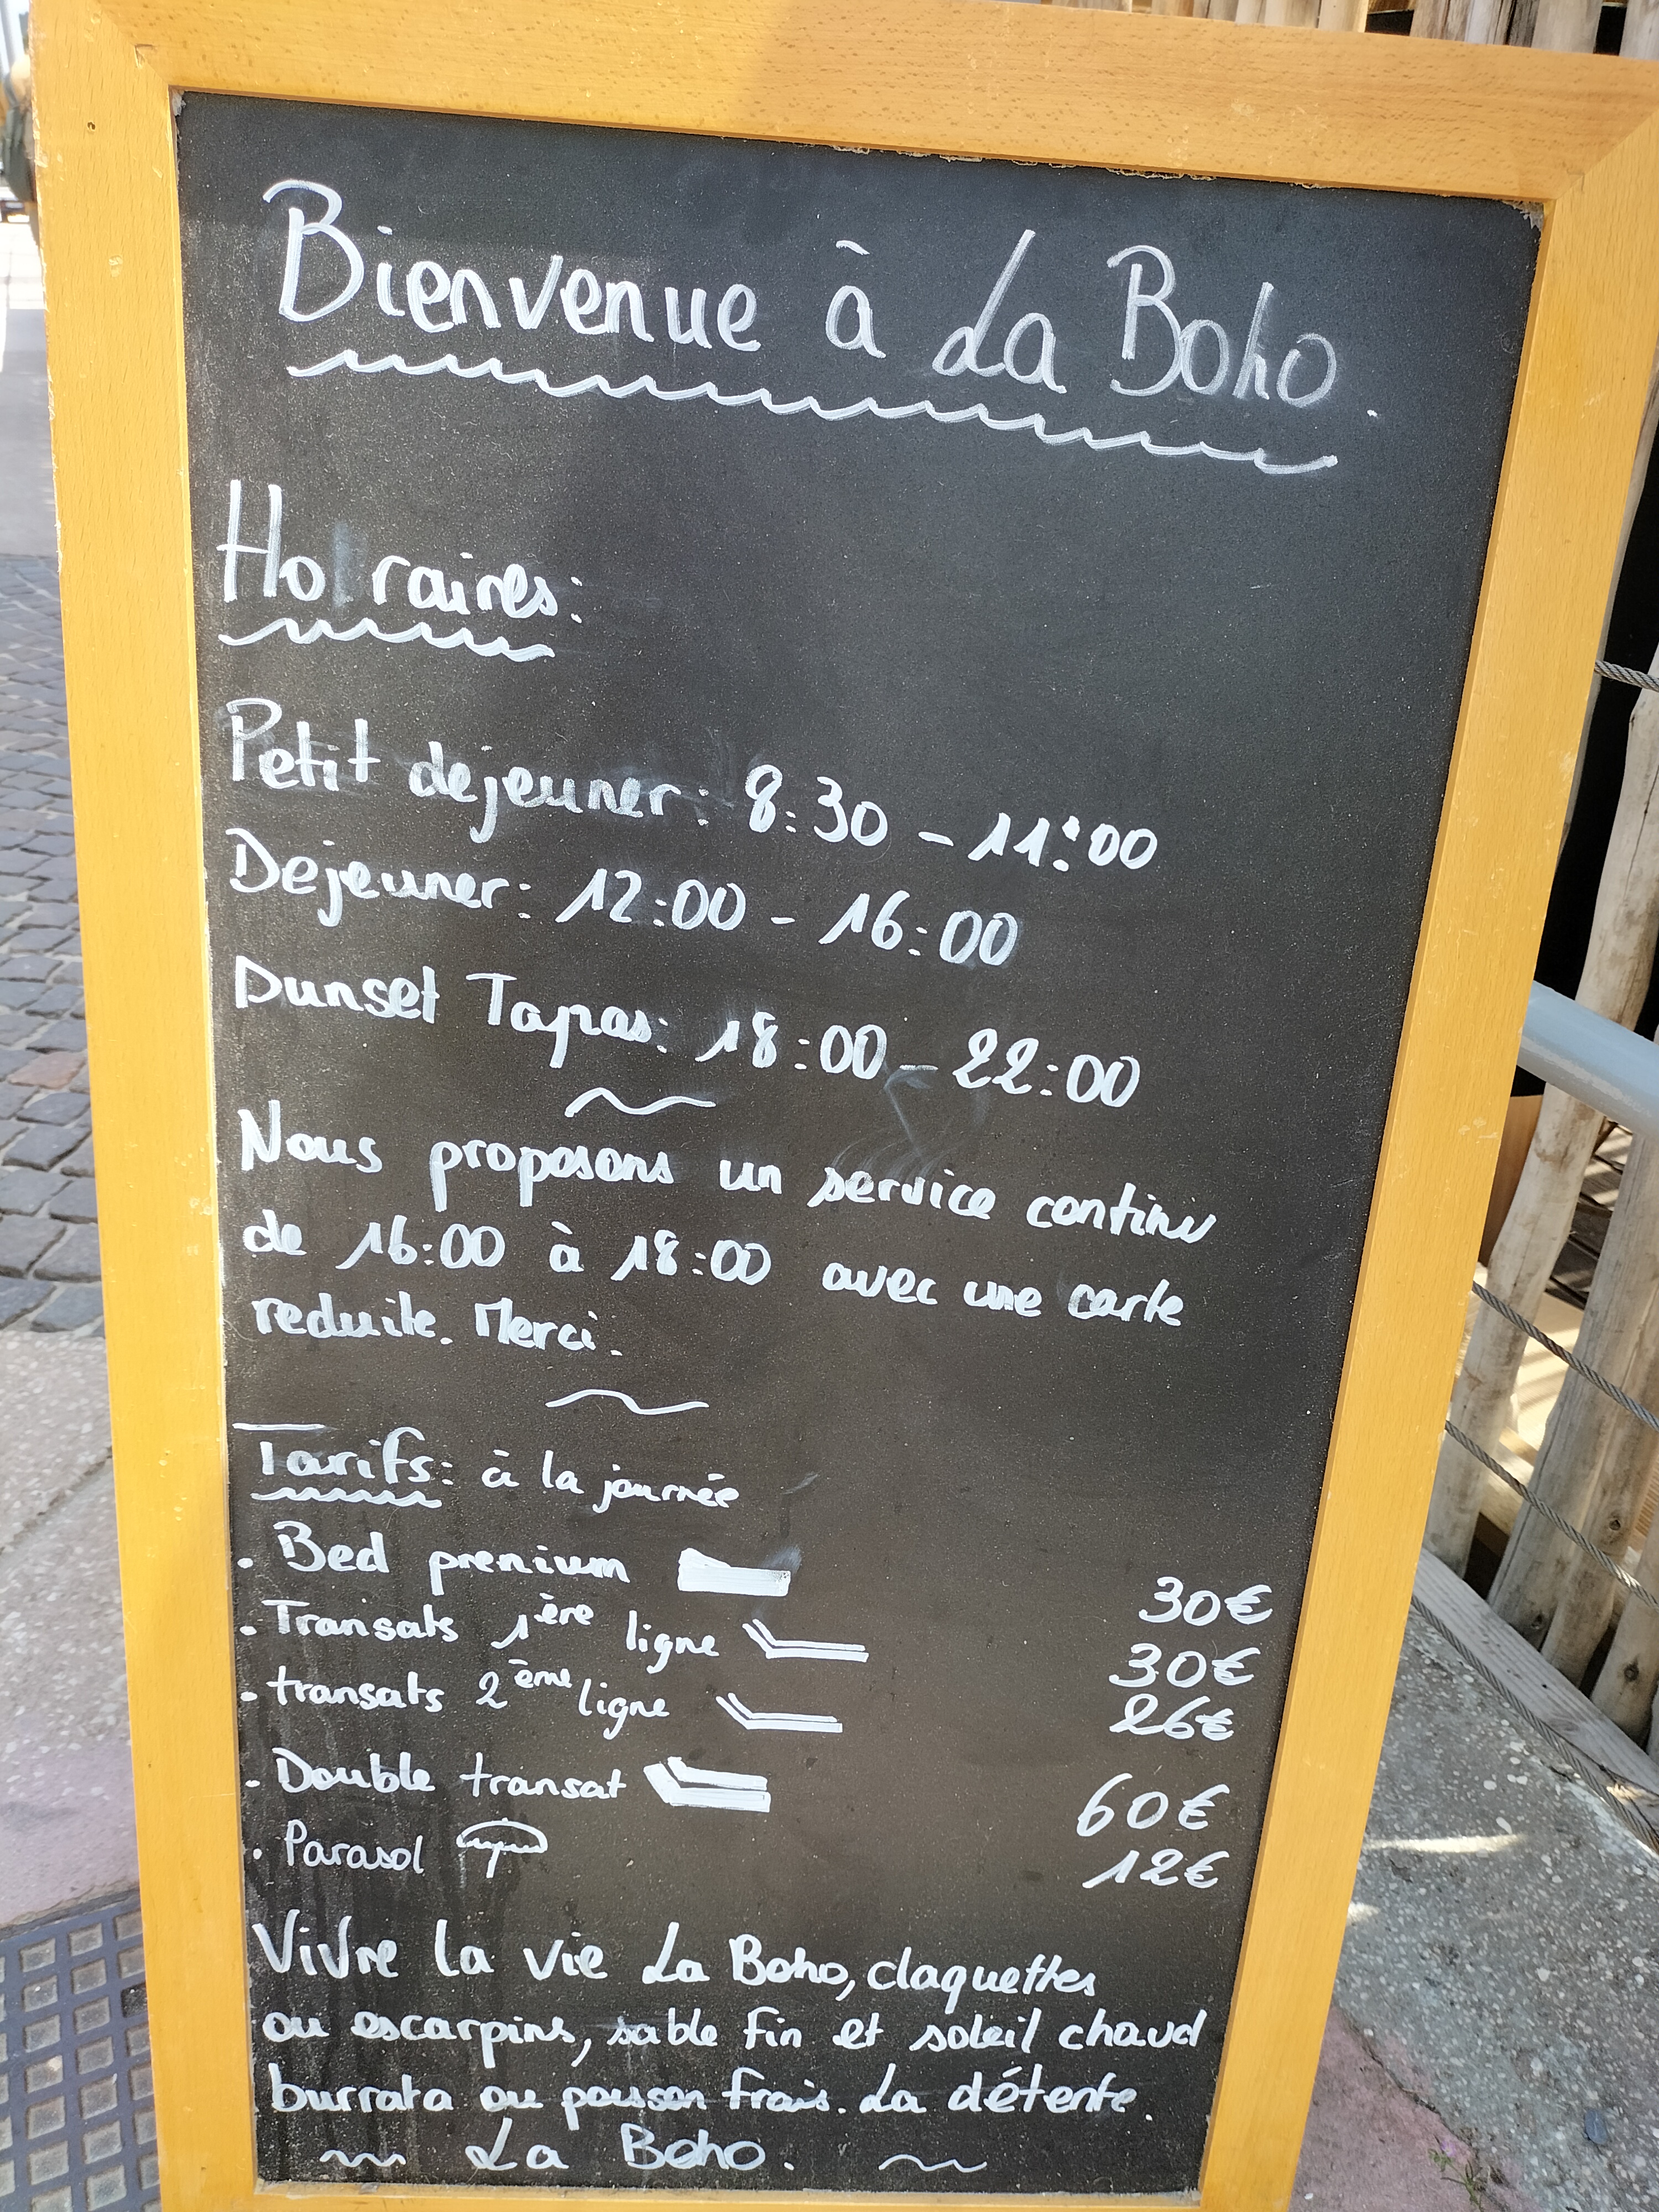 Bienvenue à La Boho.
Horaires:
Petit dejeuner: 8:30 - 11:00
Dejeuner: 12:00 - 16:00
Dunset Tapas: 18:00 - 22:00
Nous proposons un service continu
de 16:00 à 18:00 avec une carte
reduite. Merci.
Tarifs: à la journée
. Bed prenium 30€
. Transats 1ère ligne 30€
. transats 2ème ligne 26€
. Double transat 60€
. Parasol 12€
Vivre la vie La Boho, claquettes
ou escarpins, sable fin et soleil chaud
burrata ou poisson frais. La détente.
La Boho.